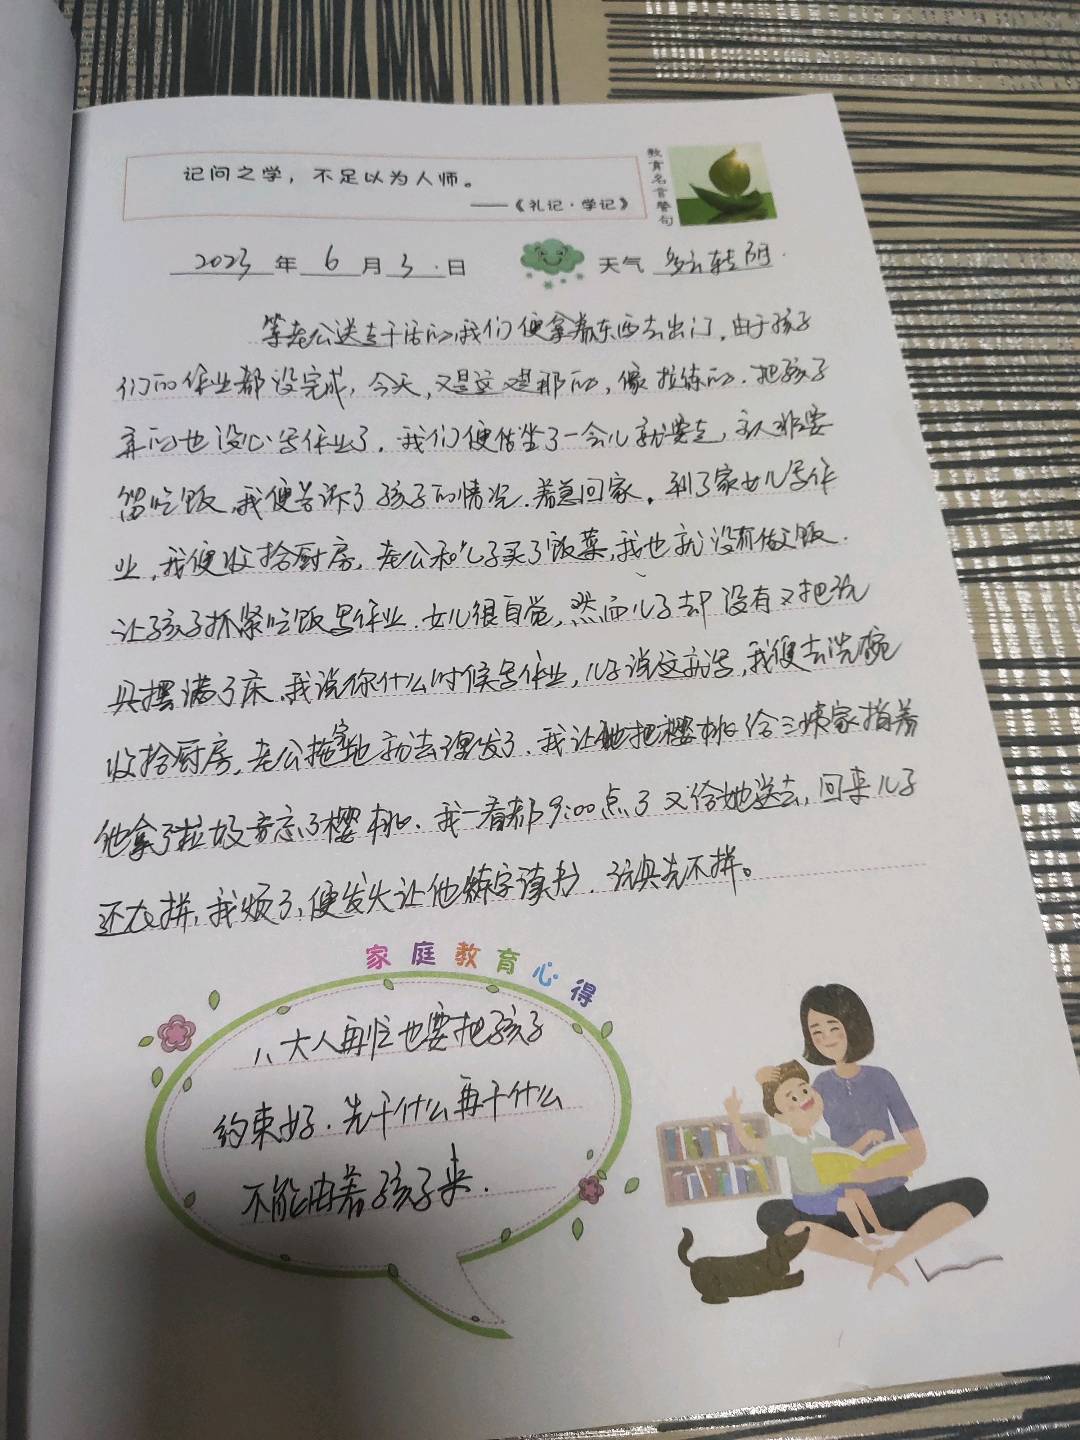 记问之学，不足以为人师。
——《礼记·学记》
教育名言警句
2023年6月3日 天气 多云转阴.
等老公送走干活的,我们便拿着东西去出门,由于孩子
们的作业都没完成,今天,又是这又是那的,像拉练的.把孩子
弄的也没心写作业了.我们便估坐了一会儿就要走,主人非要
留吃饭,我便告诉了孩子的情况.着急回家.到了家女儿写作
业,我便收拾厨房,老公和儿子买了饭菜,我也就没有做饭.
让孩子抓紧吃饭写作业.女儿很自觉,然而儿子却没有又把玩
具摆满了床.我说你什么时候写作业,儿子说这就写,我便去洗碗
收拾厨房,老公拖家地就去理发了.我让他把樱桃给三姨家捎着
他拿了垃圾竟忘了樱桃.我一看都9:00点了又给她送去,回来儿子
还在拼,我烦了,便发火让他练字读书.玩具先不拼。
家庭教育心得
1、大人再忙也要把孩子
约束好.先干什么再干什么
不能由着孩子来.